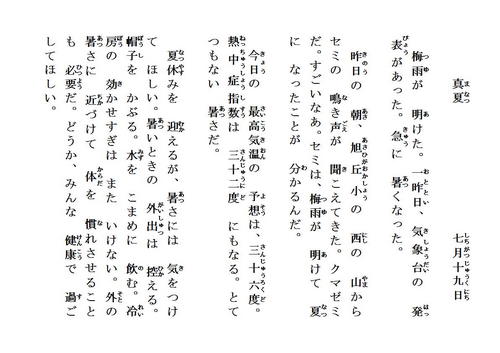 真夏
七月十九日
梅雨が 明けた。一昨日、気象台の 発
表があった。急に 暑くなった。
昨日の 朝、旭丘小の 西の 山から
セミの 鳴き声が 聞こえてきた。クマゼミ
だ。すごいなあ。セミは、梅雨が 明けて 夏
に なったことが 分かるんだ。
今日の 最高気温の 予想は、三十六度。
熱中症指数は 三十二度 にもなる。とて
つもない 暑さだ。
夏休みを 迎えるが、暑さには 気をつけ
て ほしい。暑いときの 外出は 控える。
帽子を かぶる。水を こまめに 飲む。冷
房の 効かせすぎは また いけない。外の
暑さに 近づけて 体を 慣れさせること
も 必要だ。どうか、みんな 健康で 過ご
してほしい。